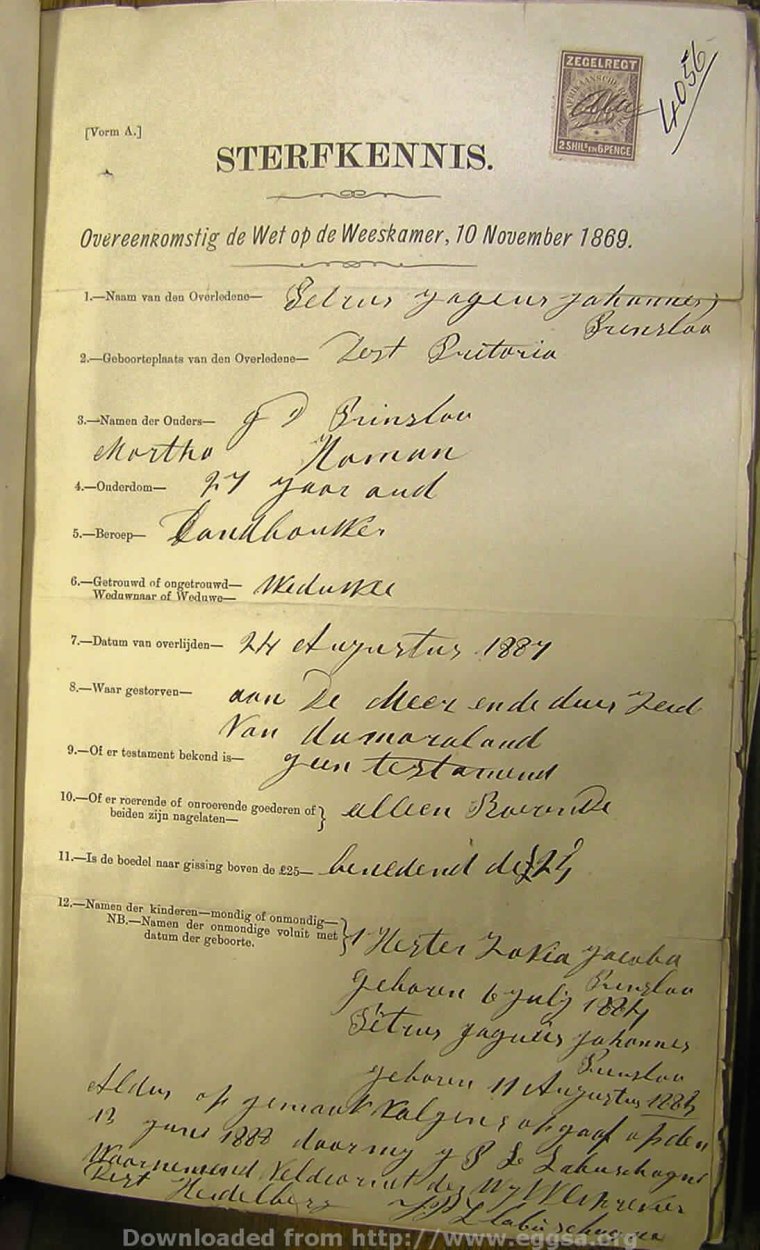 ZEGELREGT
2 SHIL. EN 6 PENCE
4056
[Vorm A.]
STERFKENNIS.
Overeenkomstig de Wet op de Weeskamer, 10 November 1869.
1.—Naam van den Overledene— Petrus Jogeus Johannes
Prinsloo
2.—Geboorteplaats van den Overledene— Dest Pretoria
3.—Namen der Ouders— J D Prinsloo
Martha Homan
4.—Ouderdom— 27 yaar oud
5.—Beroep— Landbouwker
6.—Getrouwd of ongetrouwd—
Weduwnaar of Weduwe— Weduwee
7.—Datum van overlijden— 24 Augustus 1887
8.—Waar gestorven— aan De Meer ende duer Zeid
Van damoraland
9.—Of er testament bekend is— geen testamend
10.—Of er roerende of onroerende goederen of
beiden zijn nagelaten— alleen Roerende
11.—Is de boedel naar gissing boven de £25— benedend de £25
12.—Namen der kinderen—mondig of onmondig—
NB.—Namen der onmondige voluit met
datum der geboorte.
1 Hester Zofia Jacoba
Prinsloo
geboren 6 July 1884
Petrus Joguus Johannes
Prinsloo
geboren 11 Augustus
Aldus op gemaak Volgens opgaaf op den
13 Junie 1888 door my J P L Labuschagne
Waarnemend Veldcornet des Wyk Kliprevier
Dist Heidelberg J P L Labuschagne
Downloaded from http://www.eggsa.org